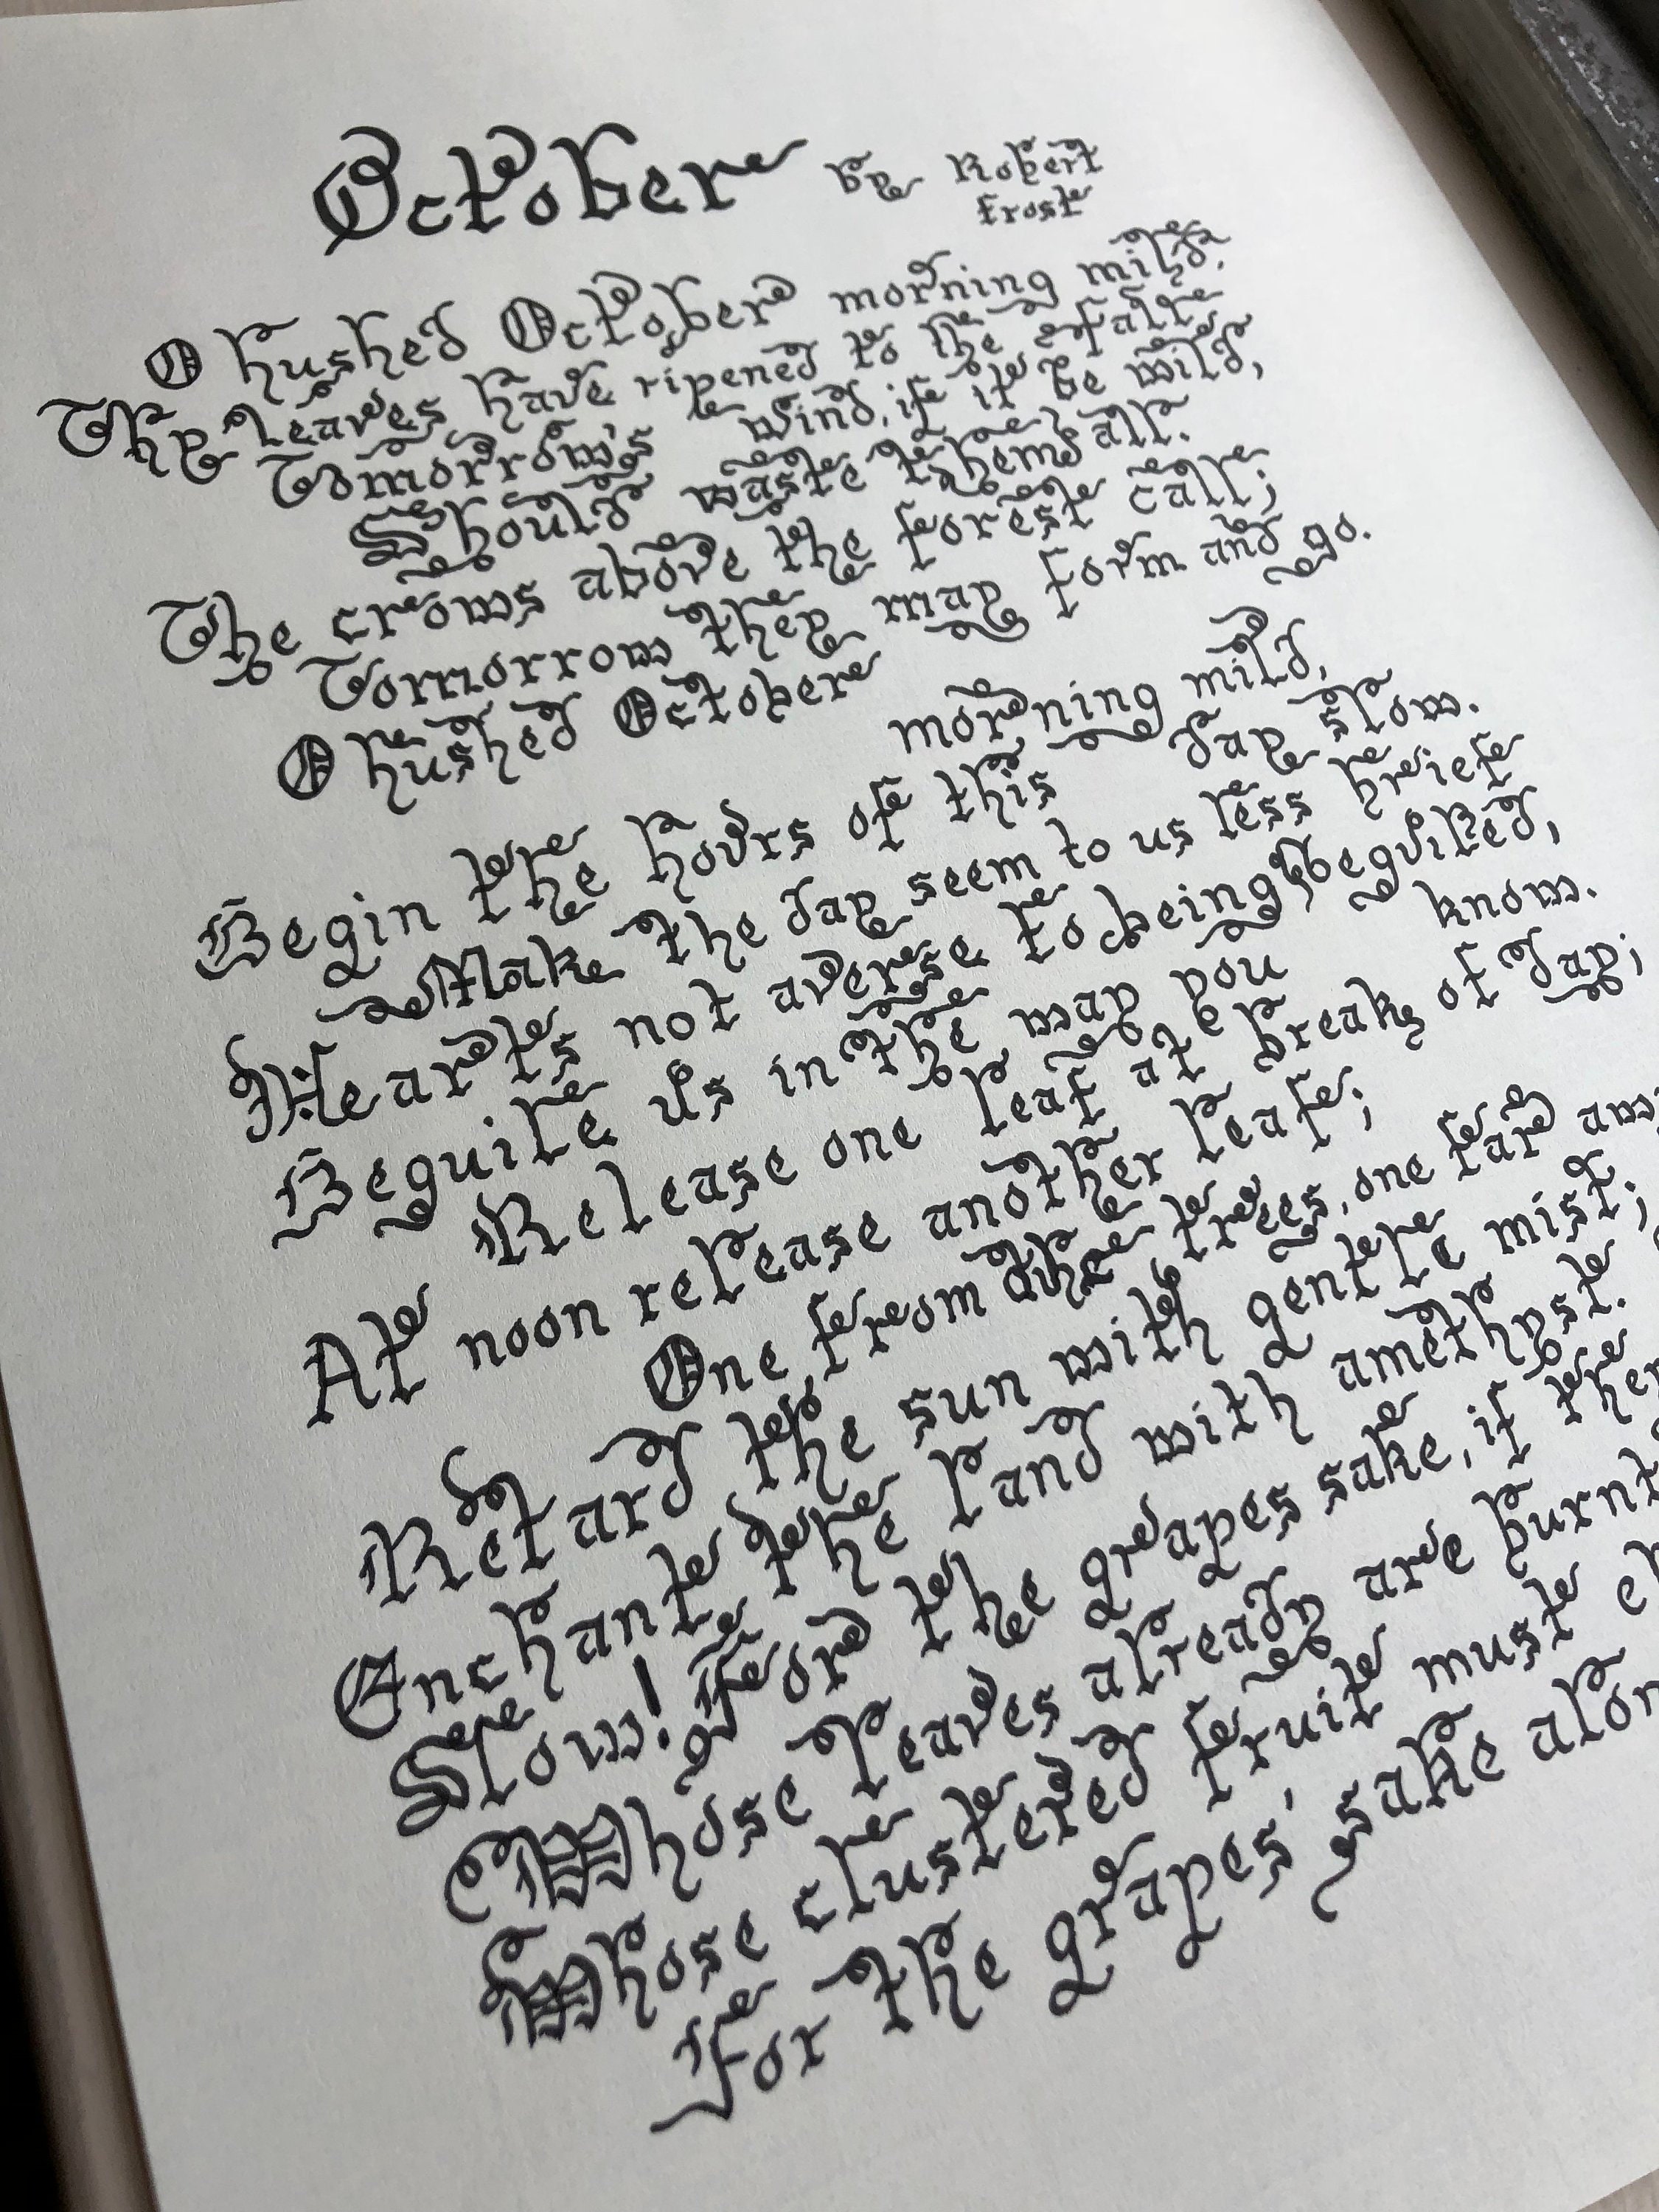 October by Robert
Frost
O hushed October morning mild,
Thy leaves have ripened to the fall
Tomorrow's wind, if it be wild,
Should waste them all.
The crows above the forest call;
Tomorrow they may form and go.
O hushed October morning mild,
Begin the hours of this day slow.
Make the day seem to us less brief
Hearts not averse to being beguiled,
Beguile us in the way you know.
Release one leaf at break of day;
At noon release another leaf;
One from the trees, one far aw
Retard the sun with gentle mist;
Enchant the land with amethyst.
Slow! For the grapes sake, if the
Whose leaves already are burnt
Whose clustered fruit must el
For the grapes' sake alon